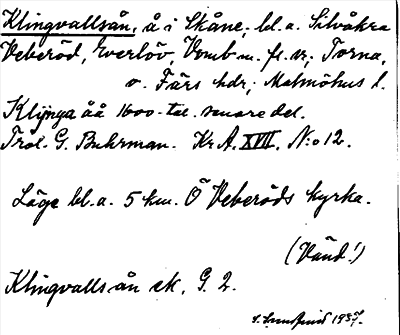 Klingvallsån, å i Skåne, bl. a. Silvåkra
Veberöd, Everlöv, Vomb m. fl. snr; Torna,
o. Färs hdr; Malmöhus l.
Klÿnga åå 1600-tal. senare del.
Trol. G. Buhrman. Kr. A. XVII. N:o 12.
Läge bl. a. 5 km. Ö Veberöds kyrka.
(Vänd!)
Klingvallsån ek. G. 2.
1937.